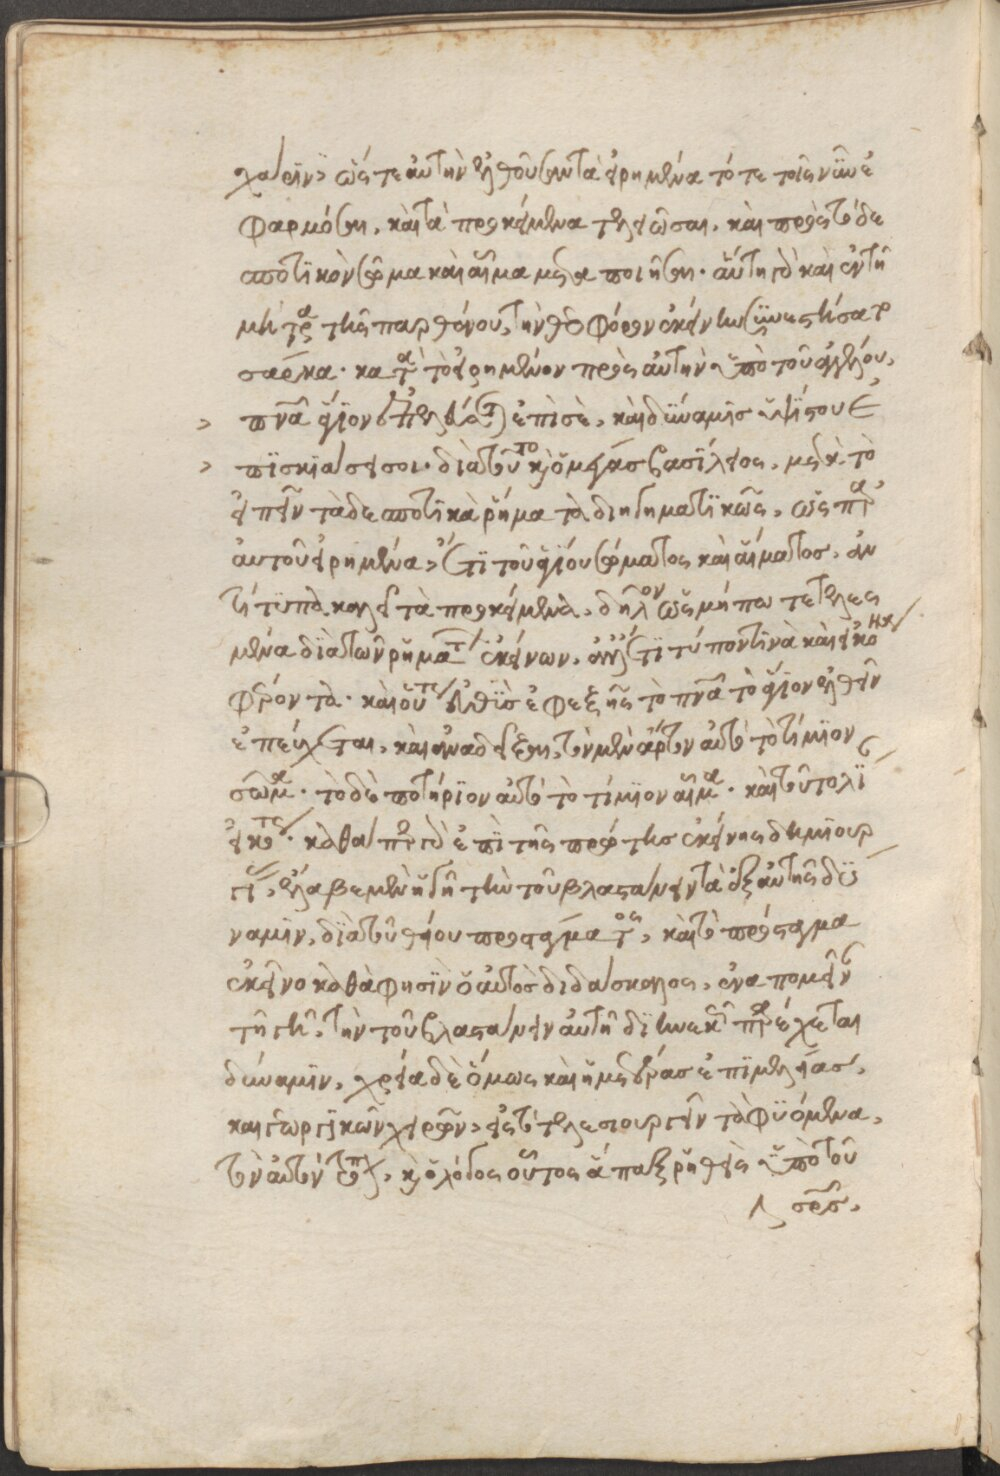 χάριν, ὥς τε αὐτὴν ἐλθοῦσαν τὰ εἰρημένα τότε τοῖς νῦν ἐ
φαρμόσαι, καὶ τὰ προκείμενα τελειῶσαι, καὶ πρὸς τὸ δε
σποτικὸν σῶμα καὶ αἷμα μεταποιῆσαι. αὕτη γὰρ καὶ ἐν τῆ
μήτρα τῆς παρθένου, τὴν θεοφόρον ἐκείνην συνεστήσατο
σάρκα. κατὰ τὸ εἰρημένον πρὸς αὐτὴν ὑπὸ τοῦ ἀγγέλου,
πνα ἅγιον ἐπελεύσεται ἐπὶ σὲ, καὶ δύναμις ὑψίστου ἐ
πισκιάσει σοι. διὰ τοῦτο καὶ ὁ μέγας βασίλειος, μετὰ τὸ
εἰπεῖν τὰ δεσποτικὰ ῥήματα διηγηματικῶς, ὡς παρ
αὐτοῦ εἰρημένα, ἔτι τοῦ ἁγίου σώματος καὶ αἵματος, ἀν
τίτυπα καλεῖ τὰ προκείμενα. δῆλον ὡς μήπω τετελεσ
μένα διὰ τῶν ῥημάτων ἐκείνων. ἀλλ ἔτι τύπον τινὰ καὶ εἰκόνα
φέροντα. καὶ οὕτως εὐθὺς ἐφεξῆς τὸ πνα τὸ ἅγιον ἐλθεῖν
ἐπεύχεται, καὶ ἀναδεῖξαι, τὸν μὲν ἄρτον αὐτὸ τὸ τίμιον
σῶμα. τὸ δὲ ποτήριον αὐτὸ τὸ τίμιον αἷμα. καὶ τοῦτο λί
εἰκότως. καθάπερ γὰρ ἐπὶ τῆς πρώτης ἐκείνης δημιουρ
γίας, ἔλαβε μὲν ἡ γῆ τὴν τοῦ βλαστάνειν τὰ ἐξ αὐτῆς δύ
ναμιν, διὰ τοῦ θείου προστάγματος, καὶ τὸ πρόσταγμα
ἐκεῖνο καθά φησιν ὁ αὐτὸς διδάσκαλος, ἐναπομεῖναν
τῆ γῆ, τὴν τοῦ βλαστάνειν αὐτῆ διηνεκῆ παρέχεται
δύναμιν, χρεία δὲ ὅμως καὶ ἡμετέρας ἐπιμελείας,
καὶ γεωργικῶν χειρῶν, εἰς τὸ τελεσιουργεῖν τὰ φυόμενα,
τὸν αὐτὸν τρόπον, καὶ ὁ λόγος οὗτος ἅπαξ ῥηθεὶς ὑπὸ τοῦ
σρς.